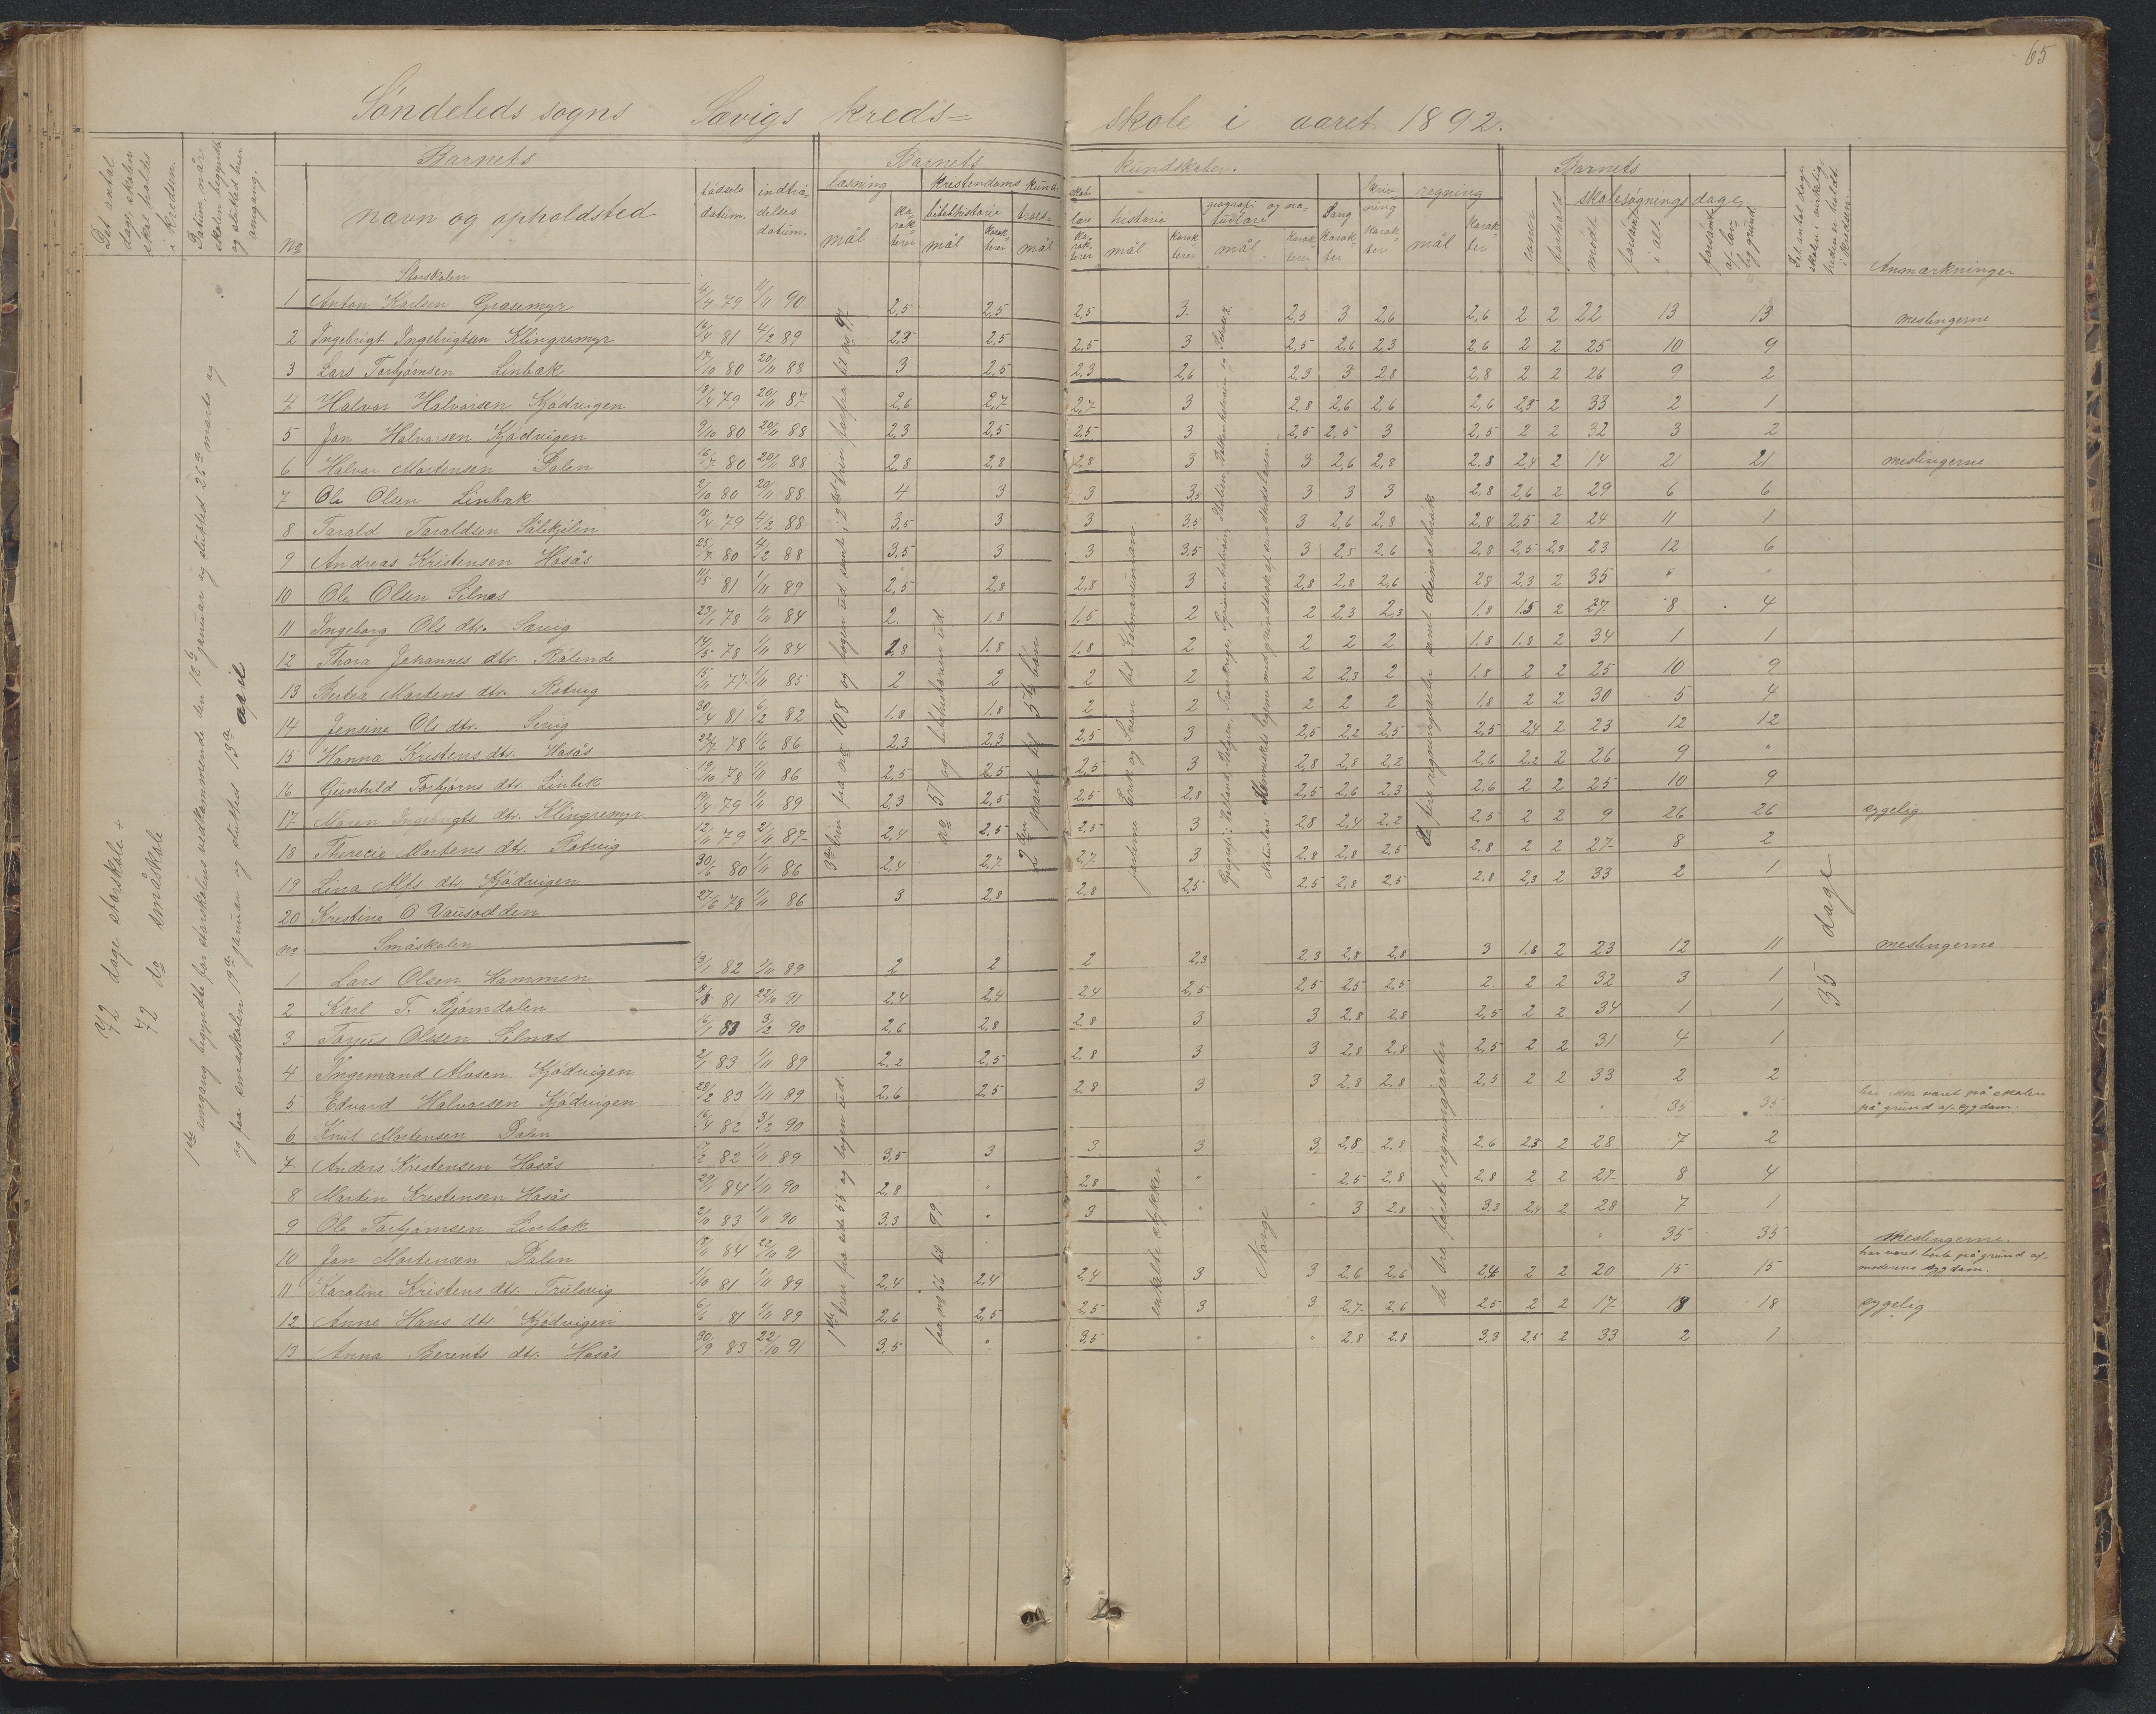 65
Søndeleds sogns Sævigs kreds= skole i aaret 1892.
Det antal dage, skolen skal holdes i kredsen.
Datum, når skolen begyndte og slutted hver angang.
Barnets
No
navn og opholdsted
fødsels datum.
indtrædelses datum.
Barnets kundskaber.
læsning
mål
Karakterer
kristendoms kund-
bibelhistorie
mål
Karakterer
troes-
mål
skab
lære
Karakterer
historie
mål
Karakterer
geografi og naturlære
mål
Karakterer
Sang
Karakter
Skrivning
Karakter
regning
mål
Karakter
Barnets
evner
forhold
skolesøgningsdage
mødt
forsømt i alt
forsømt af lovlig grund
Det antal dage skolen i virkeligheden er holdt i kredsen
Anmærkninger
72 dage storskole +
72 do småskole
1ste angang begyndte for storskolens vedkommende den 13de januar og slutted 26de marts og
og for småskolen 19de januar og slutted 13de april
Storskolen
1 Anton Karlsen Grasemyr 4/4 79 11/11 90 2,5 2,5 2,5 3. 2,5 3 2,6 2,6 2 2 22 13 13 meslingerne
2 Ingebrigt Ingebrigtsen Klingremyr 16/4 81 4/2 89 2,3 2,5 2,5 3 2,5 2,6 2,3 2,6 2 2 25 10 9
3 Lars Torbjørnsen Linbæk 17/10 80 20/11 88 3 2,5 2,3 2,6 2,3 3 2,8 2,8 2 2 26 9 2
4 Halvor Halvorsen Kjødvigen 13/4 79 20/11 87 2,6 2,7 2,7 3 2,8 2,6 2,6 2,6 2,3 2 33 2 1
5 Jon Halvorsen Kjødvigen 9/10 80 20/11 88 2,3 2,5 2,5 3 2,5 2,5 3 2,5 2 2 32 3 2
6 Halvor Mortensen Dalen 16/7 80 20/11 88 2,8 2,8 2,8 3 3 2,6 2,8 2.8 2,4 2 14 21 21 meslingerne
7 Ole Olsen Linbæk 2/10 80 20/11 88 4 3 3 3,5 3 3 3 2,8 2,6 2 29 6 6
8 Tarald Taraldsen 12/4 79 4/2 88 3,5 3 3 3.5 3 2,6 2,8 2,8 2,5 2 24 11 1
9 Andreas Kristensen Hasås 25/7 80 4/2 88 3,5 3 3 3.5 3 2,5 2.6 2,8 2,5 2,3 23 12 6
10 Ole Olsen Silnes 11/5 81 1/11 89 2,5 2,8 2,8 3 2,8 2,8 2,6 28 2,3 2 35 " "
11 Ingeborg Ols dtr. Sævig 23/1 78 1/11 84 2. 1,8 1.5 2 2 2,3 2,3 1.8 1.5 2 27 8 4
12 Thora Johannes dtr. 14/5 78 1/11 84 1,8 1.8 1.8 2 2 2 2 1.8 1.8 2 34 1 1
13 Martens dtr. Rotvig 15/11 77 1/11 85 2 2 2 2 2 2,3 2 1.8 2 2 25 10 9
14 Jensine Ols dtr. Sevig 30/4 81 6/2 82 1.8 1.8 2 2 2 2 2 1,8 2 2 30 5 4
15 Hanna Kristens dtr. Hasås 22/7 78 1/6 86 2,3 2,3 2,5 3 2,5 2,2 2,5 2,5 2,4 2 23 12 12
16 Gunhild Torbjørns dtr. Linbæk 19/10 78 1/11 86 2,5 2,5 2,5 3 2,8 2,8 2,2 2,6 2,2 2 26 9 "
17 Maren Ingebrigts dtr. Klingremyr 19/4 79 1/11 89 2,3 2,5 2,5 2,8 2,5 2,6 2,3 2.6 2 2 25 10 9
18 Therecie Martens dtr. Rotvig 12/11 79 2/11 87 2,4 2.5 2,5 3 28 2,4 2,2 2.5 2 2 9 26 26 sygelig
19 Lina Alfs dtr. Kjødvigen 30/6 80 1/11 86 2,4 2,7 2,7 3 2.8 2,8 2,5 2.8 2 2 27 8 2
20 Kristine O Vausodden 27/6 78 1/11 86 3 2,8 2.8 2,5 2,5 2,8 2,5 2.8 2,3 2 33 2 1
3die trin fra no 108 og bogen ud samt i 2det trin forfra til no 97
no 57 og bibelhistorien ud.
2den part til 5te bøn
jarlene Erik og Svein til Kalmarunionen.
Geografi: Holland, Belgien, Frankrige,
Naturlære: Menneskets legeme med grundtræk af sundhedslæren.
De fire regningsarter samt decimalbrøk
35 dage
no Småskolen
1 Lars Olsen Hammen 13/1 82 1/11 89 2 2 2 2,3 2.3 2,8 2,8 3 1.8 2 23 12 11 meslingerne
2 Karl T. Bjørndalen 81 22/10 91 2,4 2,4 2,4 2,5 2,5 2,5 2,5 2. 2 2 32 3 1
3 Torjus Olsen Silnæs 16/1 83 3/2 90 2,6 2,8 2.8 3 3 2.8 2.8 2,5 2 2 34 1 1
4 Ingemand Alvsen Kjødvigen 2/1 83 1/11 89 2,2 2,5 2.8 3 3 2.8 2.8 2,5 2 2 31 4 1
5 Edvard Halvorsen Kjødvigen 28/2 83 1/11 89 2,6 2,5 2.8 3 3 2.8 2,8 2,5 2 2 33 2 2
6 Knut Mortensen Dalen 16/4 82 3/2 90 " 35 35 har ikke været på skolen på grund af sygdom.
7 Anders Kristensen Hasås 17/2 82 1/11 89 3,5 3 3 3 3 2.8 2.8 2.6 2.3 2 28 7 2
8 Martin Kristensen Hasås 29/1 84 1/11 90 2,8 " 2.8 " " 2,5 2.8 2.8 2 2 27 8 4
9 Ole Torbjørnsen Linbæk 2/10 83 1/11 90 3,3 " 3 " " 3 2.8 3.3 2,4 2 28 7 1
10 Jon Mortensen Dalen 84 22/10 91 " 35 35 Meslingerne.
11 Karoline Kristens dtr. Trulsvig 1/10 81 1/11 89 2,4 2,4 2,4 3 3 2,6 2,6 2,4 2 2 20 15 15 har været borte på grund af moderens sygdom.
12 Anne Hans dtr. Kjødvigen 6/6 81 1/11 89 2,6 2,5 2,5 3 3 2,7 2.6 2,5 2 2 17 18 18 sygelig
13 Anna Berents dtr. Hasås 30/9 83 22/10 91 3,5 " 3,5 " " 2.8 2.8 3,3 2,5 2 33 2 1
1ste trin fra side 55 og bogen ud.
fra no 66 til 99.
enkelte stykker
Norge
de tre første regningsarter